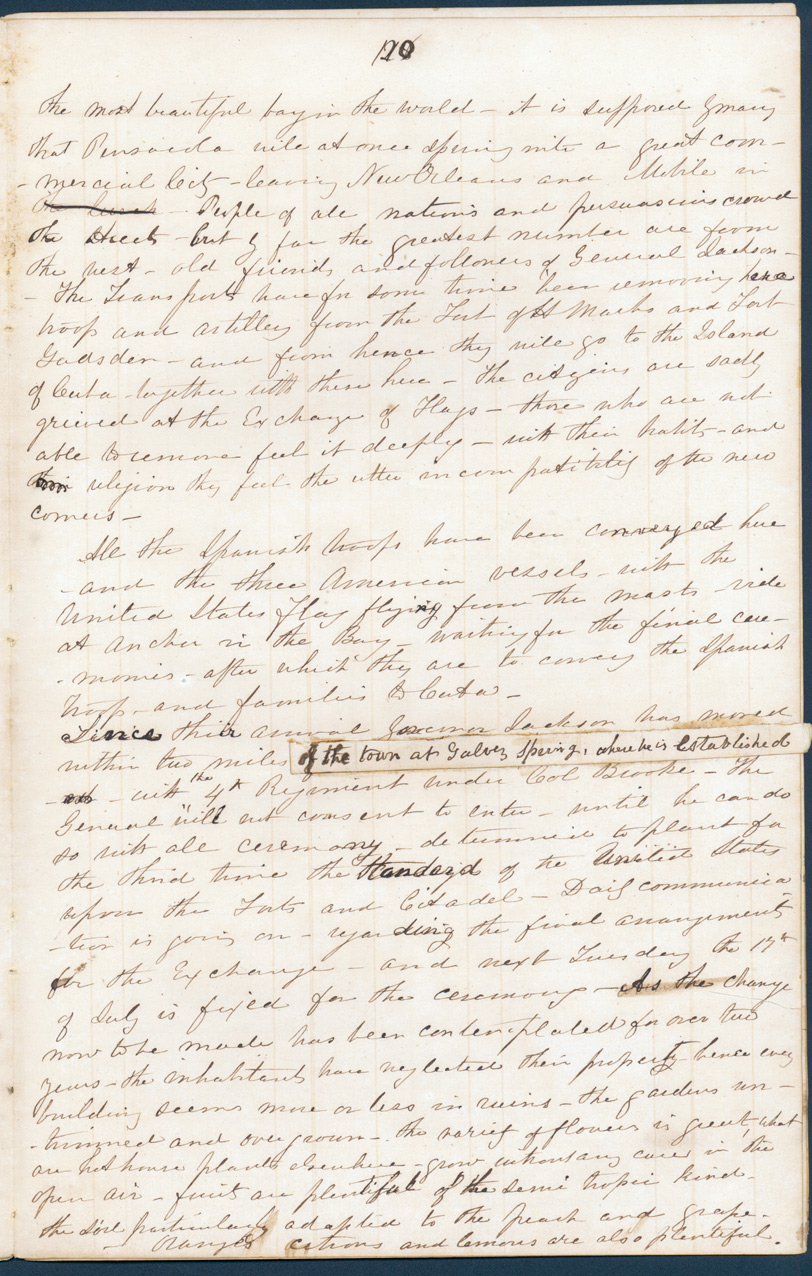 120
the most beautiful bay in the world – it is supposed by many
that Pensacola will at once spring into a great com-
- mercial City – leaving New Orleans and Mobile in
the lurch – People of all nations and persuasions crowd
the streets – but by far the greatest number are from
the west – old friends and followers of General Jackson –
– The Transports have for some time been removing
troops and artillery from the Fort of St Marks and Fort
Gadsden – and from hence they will go to the Island
of Cuba – together with those here – The citizens are sadly
grieved at the Exchange of Flags – those who are not
able to remove feel it deeply – with their habits – and
their religion they feel the utter incompatibility of the new
comers –
All the Spanish troops have been converged here
– and the three American vessels – with the
United States Flag flying from the masts – ride
at anchor in the Bay – waiting for the final cere-
- monies – after which they are to convey the Spanish
troops – and families to Cuba –
Since their arrival Governor Jackson has moved
within two miles of the town at Galvez Spring, where he is established
– with the 4th Regiment under Col Brooke – The
General will not consent to enter – until he can do
so with all ceremony – determined to plant for
the third time the Standard of the United States
upon the Forts and Citadel – Daily communica
- tion is going on – regarding the final arrangements
for the Exchange – and next Tuesday the 17th
of July is fixed for the ceremony – As the change
now to be made has been contemplated for over two
years – the inhabitants have neglected their property hence every
building seems more or less in ruins – the gardens un –
- trimmed and overgrown – the variety of flowers is great, what
are hot house plants elsewhere – grow without any care in the
open air – fruit are plentiful of the semi tropic kind –
the soil particularly adapted to the peach and grape –
– Oranges citrons and lemons are also plentiful.